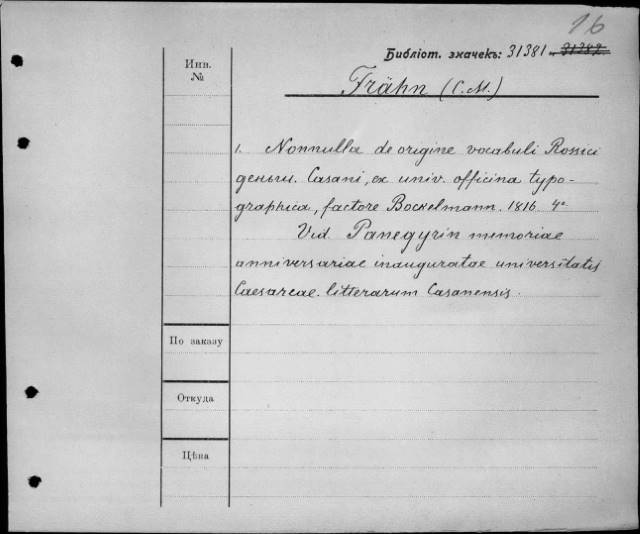 16
Библіот. значекъ: 31381 31382
Инв.
№
Frähn (C.M.)
1. Nonnulla de origine vocabuli Rossici
деньги. Casani, ex univ. officina typo-
graphica, factore Bockelmann. 1816 4º
Vid. Panegyrin memoriae
anniversariae inauguratae universitatis
Caesareae litterarum Casanensis.
По заказу
Откуда
Цѣна